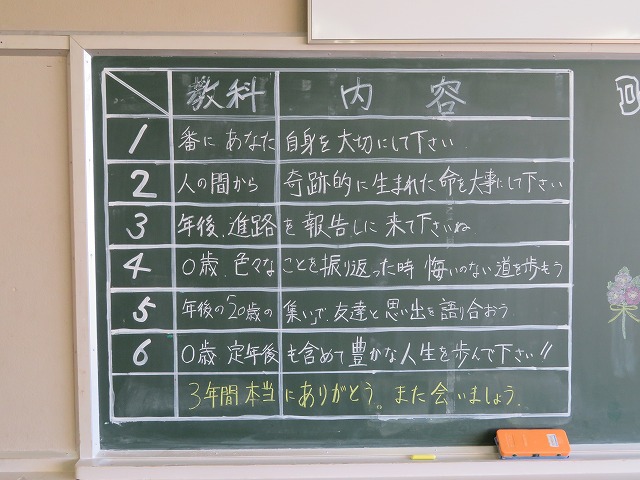 教科 内容
1 番に あなた 自身を大切にして下さい
2 人の間から 奇跡的に生まれた命を大事にして下さい
3 年後、進路を報告しに来て下さいね
4 0歳、色々なことを振り返った時 悔いのない道を歩もう
5 年後の20歳の集いで、友達と思い出を語り合おう
6 0歳 定年後も含めて豊かな人生を歩んで下さい!!
3年間本当にありがとう。また会いましょう。